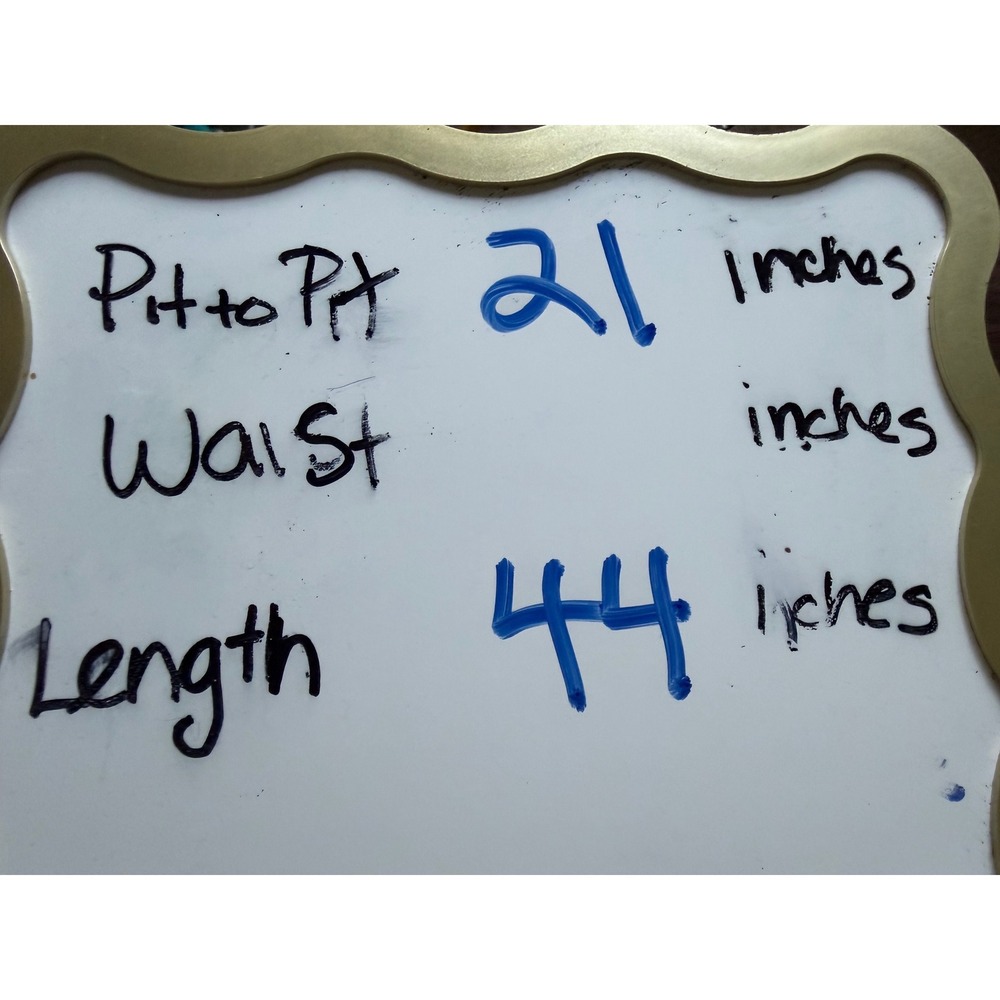 Pit to Pit 21 inches
Waist inches
Length 44 inches